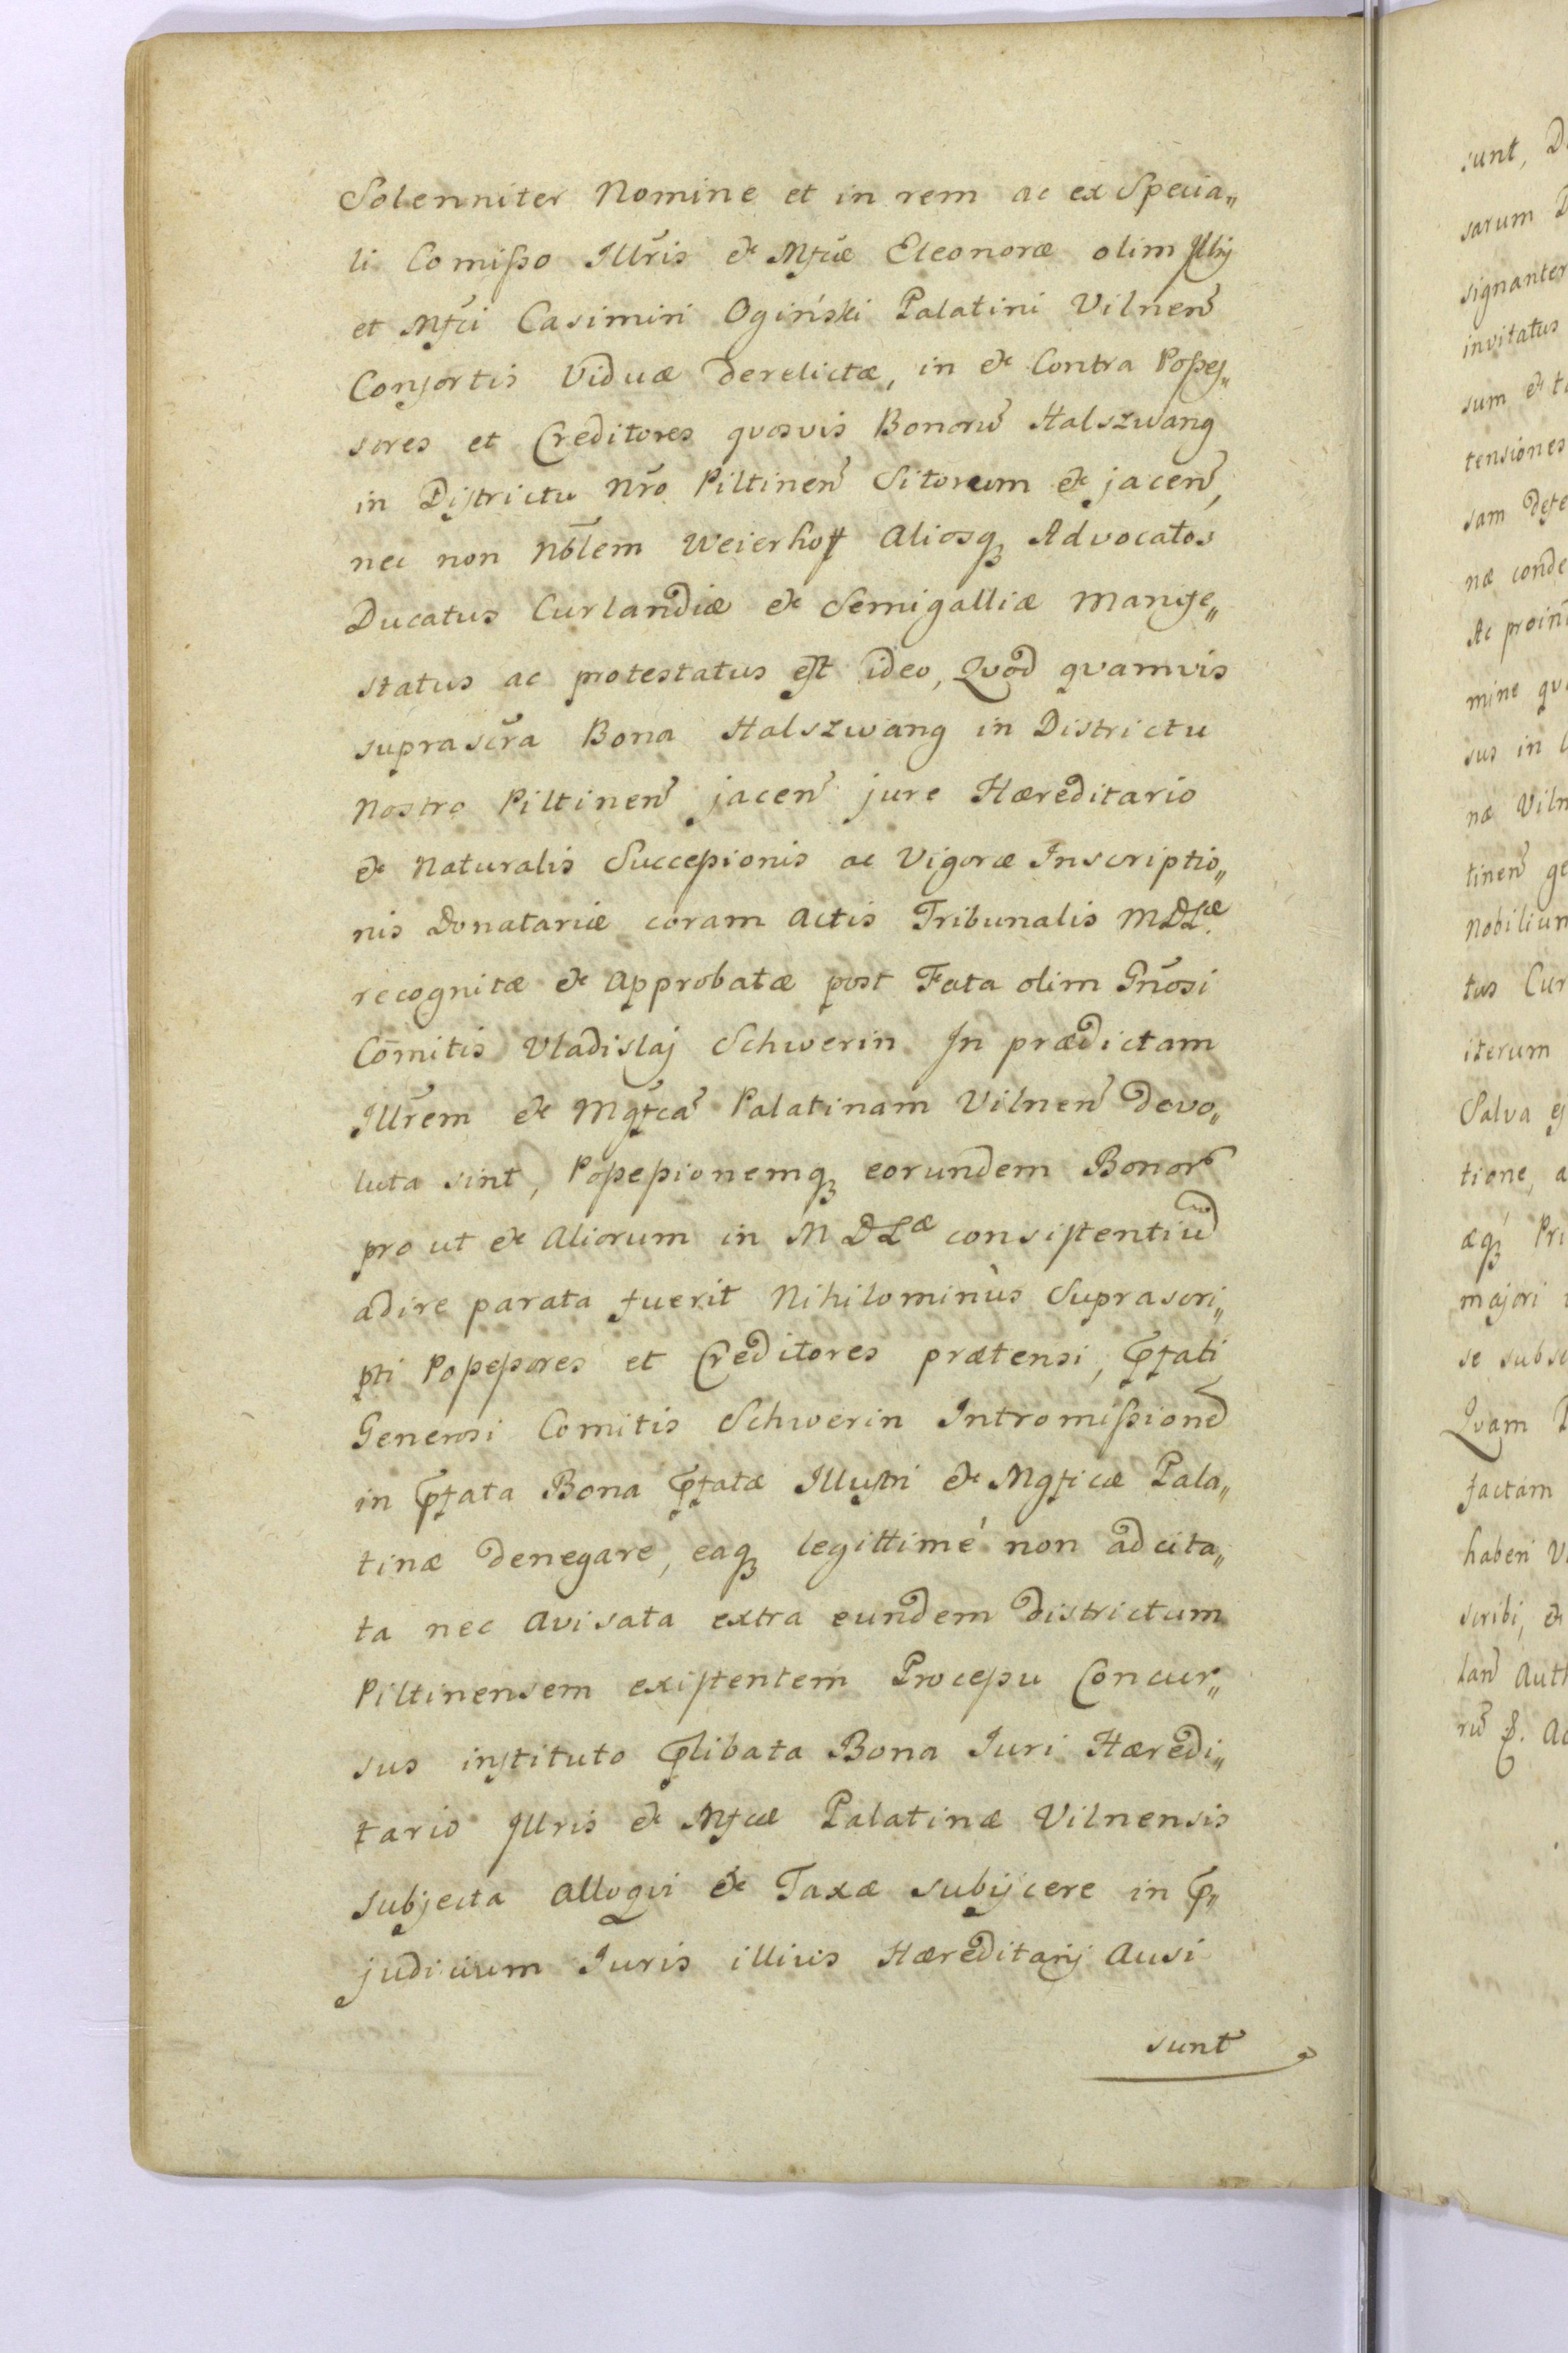 Solenniter Nomine et in rem ac ex Specia„
li Comißo Illr̃is & Mfcæ Eleonoræ olim Illris
et Mfci Casimiri Ogiński Palatini Vilnen̄
Consortis Viduæ derelictæ, in & Contra Poßes„
sores et Creditores quosvis Bonorū Halszwang
in Districtu Nr̃o Piltinen̄ Sitorum & jacen̄,
nec non Nõlem Weierhoff Aliosq Advocatos
Ducatus Curlandiæ & Semigalliæ Manife„
status ac protestatus est ideo, Quod quamvis
suprascr̃a Bona Halszwang in Districtu
Nostro Piltinen̄ jacen̄ jure Hæreditario
& Naturalis Succeßionis ac Vigore Inscriptio„
nis Donatariæ coram Actis Tribunalis MDLæ.
recognitæ & Approbatæ post Fata olim Gñosi
Cõmitis Vladislaj Schwerin In prædictam
Illr̃em & Mgfcā Palatinam Vilnen̄ devo„
luta sint, Poßeßionemq eorundem Bonorū
pro ut & Aliorum in MDLæ consistentiū
adire parata fuerit Nihilominùs Suprascri„
pti Poßeßores et Creditores prætensi, Pfati
Generosi Comitis Schwerin Intromißionē
in Pfata Bona Pfatæ Illustri & Mgficæ Pala„
tinæ denegare, eaq legittimé non adcita„
ta nec Avisata extra eundem districtum
Piltinensem existentem Proceßu Concur„
sus instituto Plibata Bona Iuri Hæredi„
tario Illris & Mfcæ Palatinæ Vilnensis
subjecta Alloqvi & Taxæ subijcere in P„
judicium Iuris illius Hæreditarij Ausi
sunt
sunt, D
sarum D
signanter
invitatus
sum & t
tensiones
sam defe
næ conde
Ac proin
mine qu
sus in
næ Viln
tinen̄ ge
Nobilium
tus Cur
iterum
Salva ej
tione, a
æq Pri
majori
se subsc
Qvam
factam
haberi V
scribi, &
lan̄ Auth
rū P. Ac